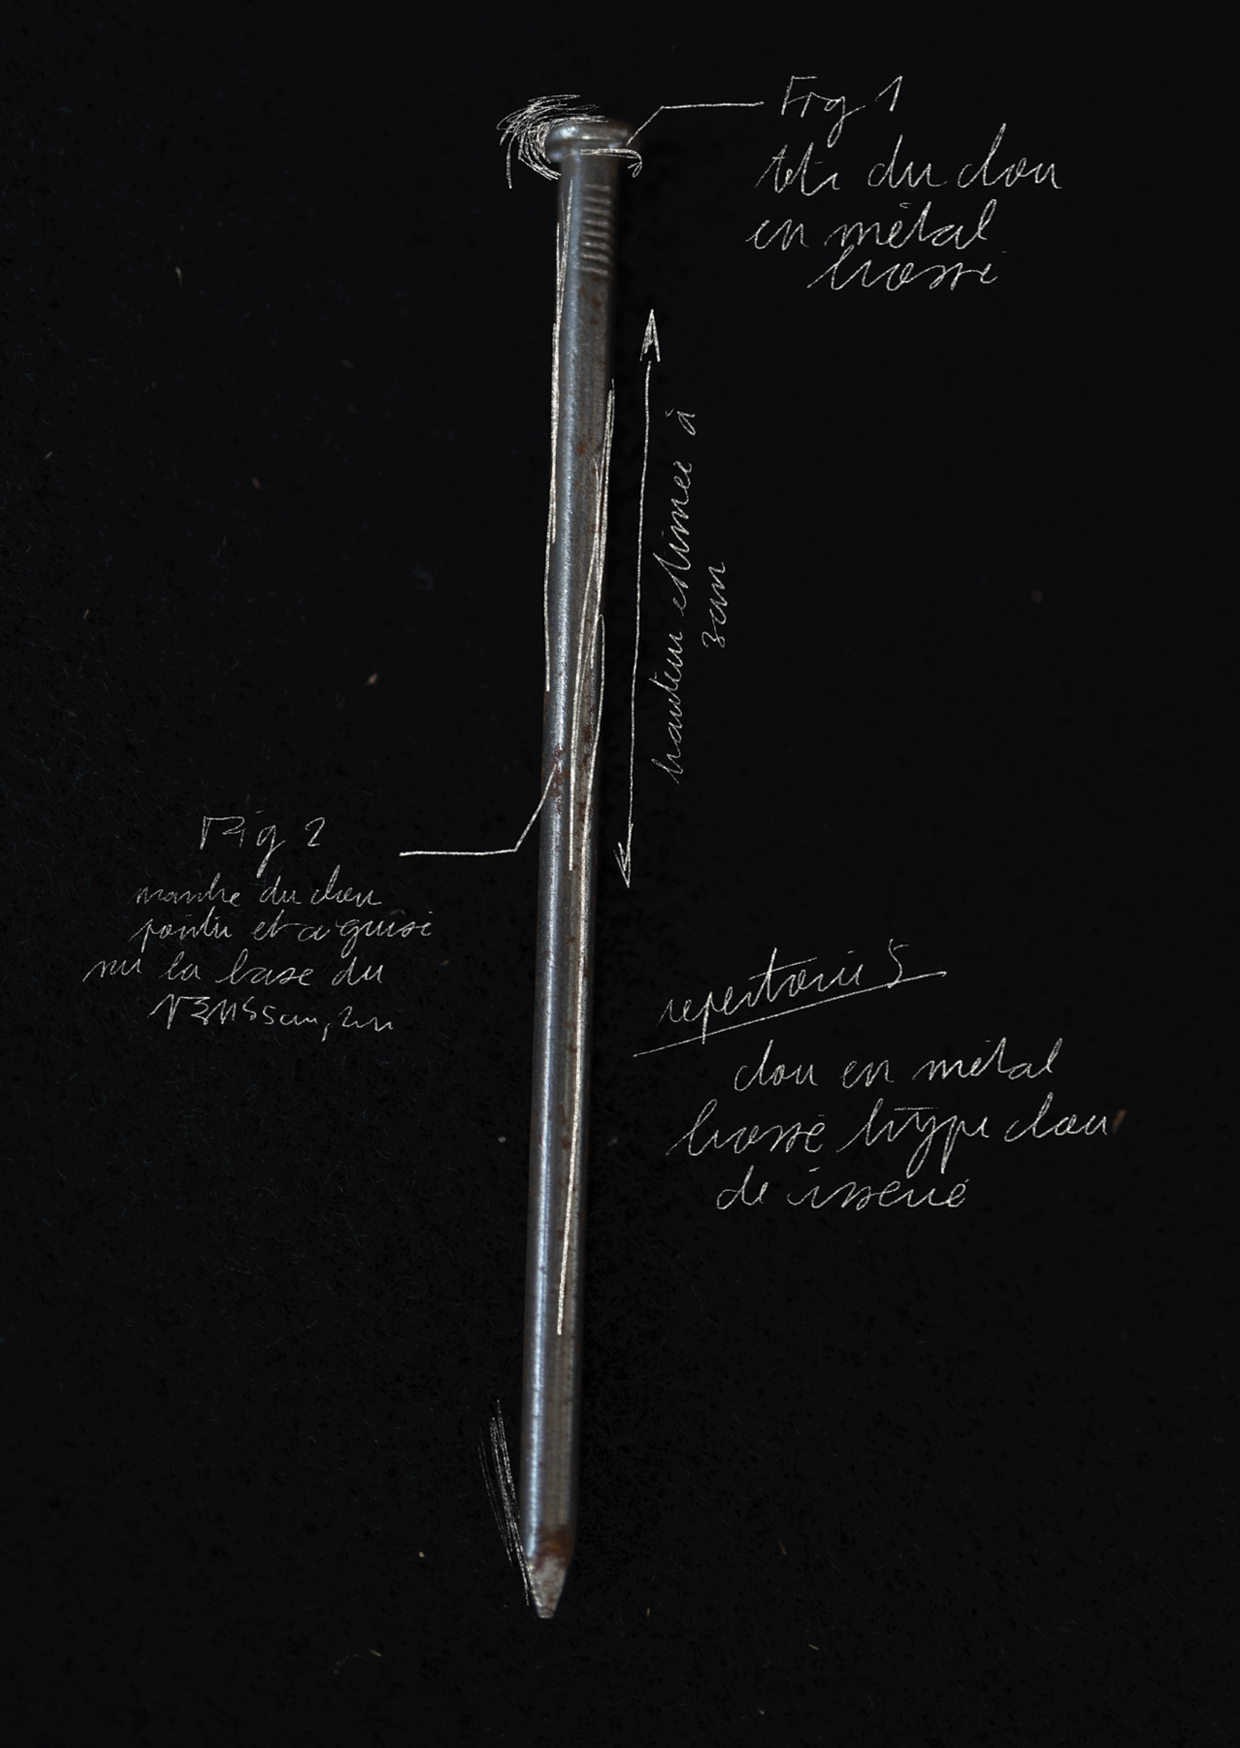 Fig 1
tête du clou
en métal
brossé
hauteur estimée à
3cm
Fig 2
manche du clou
pointu et aiguisé
sur la base du
repertorié 5
clou en métal
brossé type clou
de